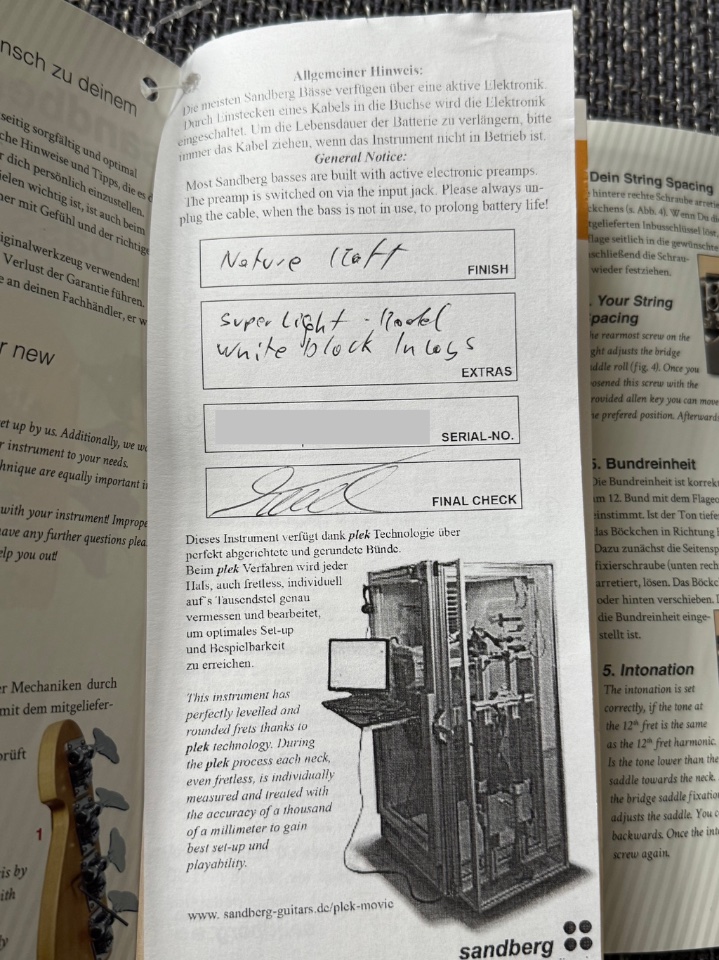 nsch zu deinem
seitig sorgfältig und optimal
che Hinweise und Tipps, die es
r dich persönlich einzustellen.
ielen wichtig ist, ist auch beim
ner mit Gefühl und der richtige
iginalwerkzeug verwenden!
Verlust der Garantie führen.
e an deinen Fachhändler, er w
r new
et up by us. Additionally, we wo
r instrument to your needs.
hnique are equally important i
with your instrument! Imprope
ave any further questions plea
elp you out!
er Mechaniken durch
mit dem mitgeliefer-
rüft
1
is by
ith
ly
Allgemeiner Hinweis:
Die meisten Sandberg Bässe verfügen über eine aktive Elektronik.
Durch Einstecken eines Kabels in die Buchse wird die Elektronik
eingeschaltet. Um die Lebensdauer der Batterie zu verlängern, bitte
immer das Kabel ziehen, wenn das Instrument nicht in Betrieb ist.
General Notice:
Most Sandberg basses are built with active electronic preamps.
The preamp is switched on via the input jack. Please always un-
plug the cable, when the bass is not in use, to prolong battery life!
Nature Matt
FINISH
Super Light - Model
White block Inlays
EXTRAS
SERIAL-NO.
FINAL CHECK
Dieses Instrument verfügt dank plek Technologie über
perfekt abgerichtete und gerundete Bünde.
Beim plek Verfahren wird jeder
Hals, auch fretless, individuell
auf's Tausendstel genau
vermessen und bearbeitet,
um optimales Set-up
und Bespielbarkeit
zu erreichen.
This instrument has
perfectly levelled and
rounded frets thanks to
plek technology. During
the plek process each neck,
even fretless, is individually
measured and treated with
the accuracy of a thousand
of a millimeter to gain
best set-up und
playability.
www. sandberg-guitars.de/plek-movie
sandberg
Dein String Spacing
hintere rechte Schraube arreti
ckchens (s. Abb. 4). Wenn Du d
tgelieferten Inbusschlüssel löse
flage seitlich in die gewünschte
schließend die Schrau-
wieder festziehen.
. Your String
pacing
he rearmost screw on the
ght adjusts the bridge
ddle roll (fig. 4). Once you
osened this screw with the
rovided allen key you can move
he prefered position. Afterward
5. Bundreinheit
Die Bundreinheit ist korrek
am 12. Bund mit dem Flageo
einstimmt. Ist der Ton tiefe
das Böckchen in Richtung H
Dazu zunächst die Seitensp
fixierschraube (unten rech
arretiert, lösen. Das Böckc
oder hinten verschieben. D
die Bundreinheit einge-
stellt ist.
5. Intonation
The intonation is set
correctly, if the tone at
the 12th fret is the same
as the 12th fret harmonic.
Is the tone lower than the
saddle towards the neck.
the bridge saddle fixatio
adjusts the saddle. You c
backwards. Once the into
screw again.